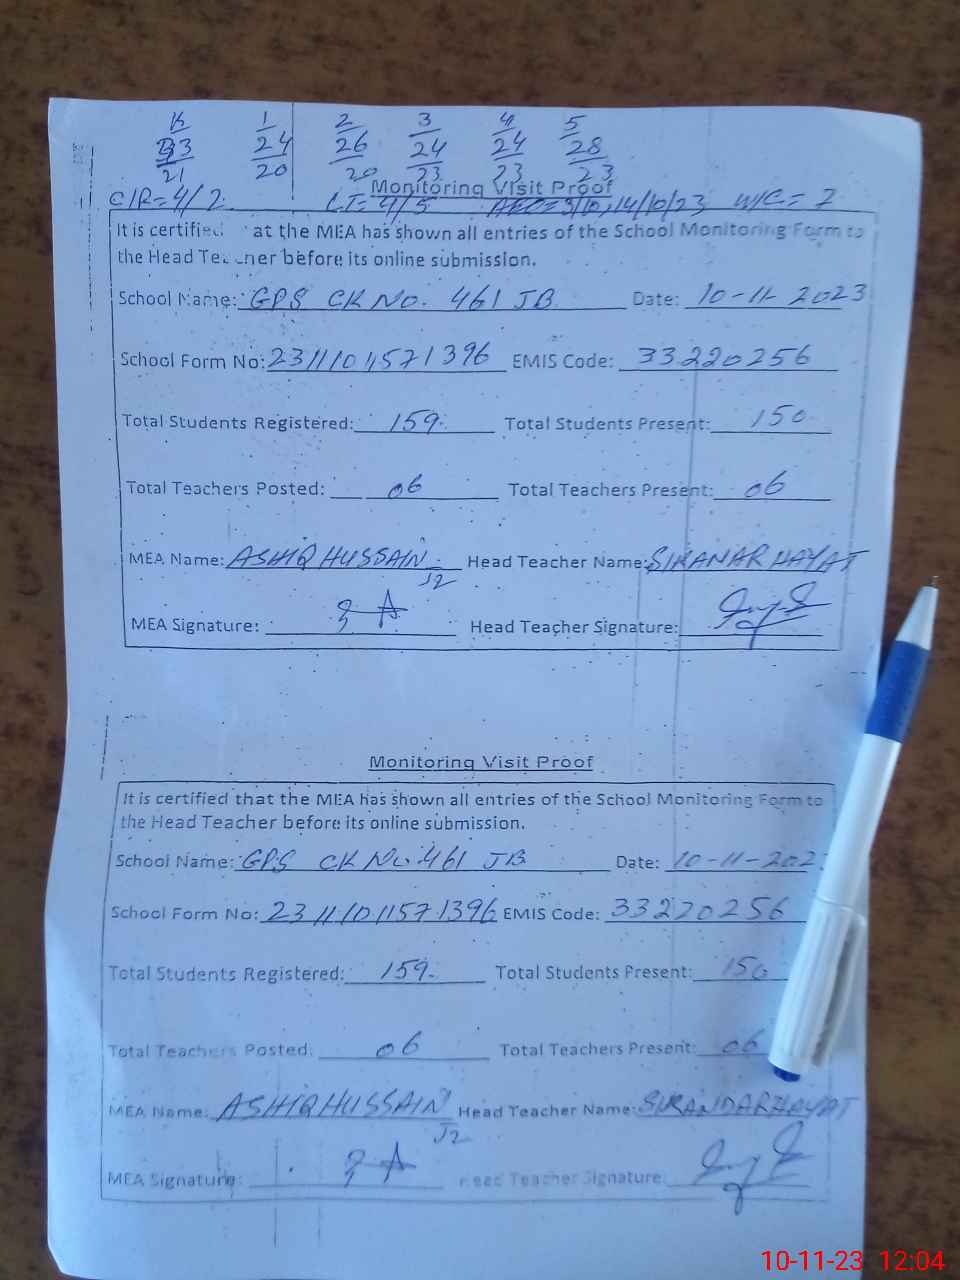 K 1 2 3 4 5
33 24 26 24 24 28
21 20 20 23 23 23
Monitoring Visit Proof
C/R=4/2 LT=4/5 AEO=3/10,14/10/23 W/C=7
It is certified at the MEA has shown all entries of the School Monitoring Form to
the Head Teacher before its online submission.
School Name: GPS CK No. 461 JB Date: 10-11-2023
School Form No: 2311101571396 EMIS Code: 33220256
Total Students Registered: 159 Total Students Present: 150
Total Teachers Posted: 06 Total Teachers Present: 06
MEA Name: ASHIQ HUSSAIN Head Teacher Name: HAYAT
J2
MEA Signature: Head Teacher Signature:
Monitoring Visit Proof
It is certified that the MEA has shown all entries of the School Monitoring Form to
the Head Teacher before its online submission.
School Name: GPS CK No. 461 JB Date: 10-11-202
School Form No: 2311101571396 EMIS Code: 33220256
Total Students Registered: 159. Total Students Present: 150
Total Teachers Posted: 06 Total Teachers Present: 06
MEA Name: ASHIQ HUSSAIN Head Teacher Name: HAYAT
J2
MEA Signature: Head Teacher Signature:
10-11-23 12:04